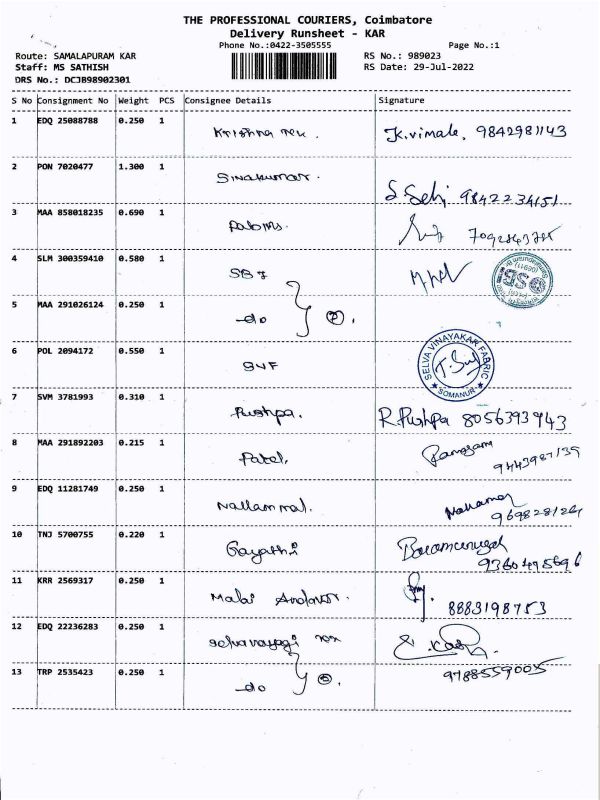 THE PROFESSIONAL COURIERS, Coimbatore
Delivery Runsheet - KAR
Phone No.:0422-3505555 Page No.:1
Route: SAMALAPURAM KAR RS No.: 989023
Staff: MS SATHISH RS Date: 29-Jul-2022
DRS No.: DCJB98902301
S No Consignment No Weight PCS Consignee Details Signature
1 EDQ 25088788 0.250 1 K.vimala, 9842981143
2 PON 7020477 1.300 1 Sivakumar. S Selvi 9842234151
3 MAA 858018235 0.690 1
4 SLM 300359410 0.580 1 SBI
5 MAA 291026124 0.250 1 -do 2.
6 POL 2094172 0.550 1 SVF SELVA VINAYAKAR FABRIC SOMANUR
7 SVM 3781993 0.310 1 Pushpa. R.Pushpa 8056393943
8 MAA 291892203 0.215 1 Patel. 9443987139
9 EDQ 11281749 0.250 1 Nallammal.
10 TNJ 5700755 0.220 1 Gayathi
11 KRR 2569317 0.250 1 Malai Andavar. 8883198753
12 EDQ 22236283 0.250 1 Selvanayagi
13 TRP 2535423 0.250 1 -do 9788559005